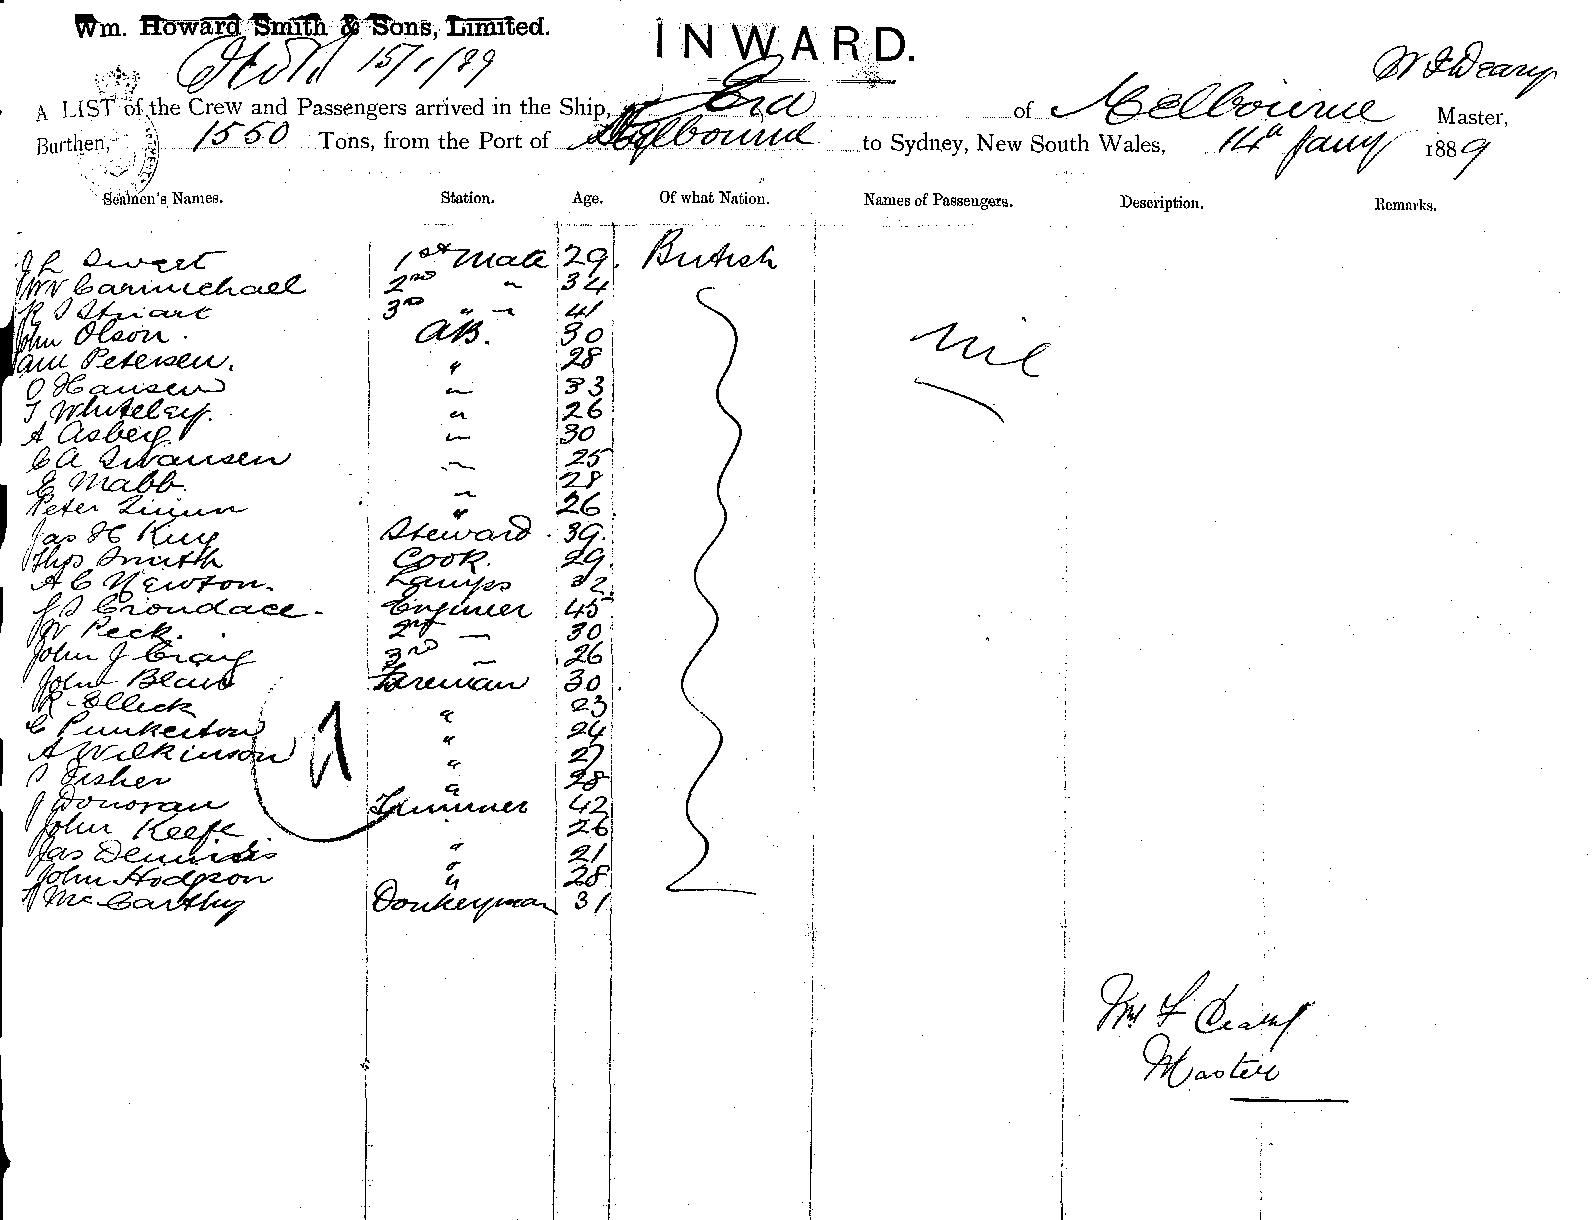 Wm. Howard Smith & Sons, Limited.
INWARD.
15/1/89
W F Deary
A LIST of the Crew and Passengers arrived in the Ship, Era of Melbourne Master,
Burthen, 1550 Tons, from the Port of Melbourne to Sydney, New South Wales, 14th Jany 1889
Seamen's Names. Station. Age. Of what Nation. Names of Passengers. Description. Remarks.
Sweet 1st Mate 29. British
Wm Carmichael 2nd " 34
R S Stuart 3rd " " 41
John Olson. AB. 30
Petersen. " 28
O Hansen " 33
T Whiteley. " 26
A Asberg " 30
C A Swansen " 25
E Mabb. " 28
Peter " 26
Jas H King Steward. 39.
Thos Smith Cook. 29.
A C Newton. Lamps 32
Crondace. Engineer 45
W Peck. 2nd " 30
John J Craig 3rd " 26
John Blair Fireman 30
R Ellick " 23
C Punkerton " 24
A Wilkinson " 27
Fisher " 28
J Donovan Trimmer 42
John Keefe 26
Jas Dennis " 21
John Hodgson " 28
McCarthy Donkeyman 31
nil
Wm F Deary
Master